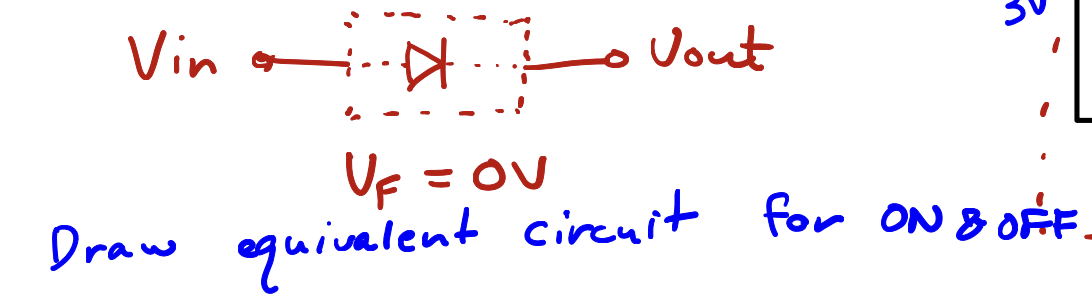 3V
Vin Vout
VF = 0V
Draw equivalent circuit for ON & OFF